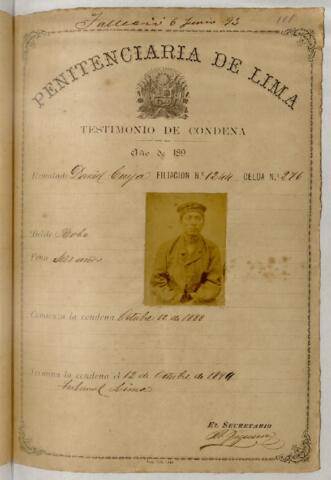 Fallecio 6 Junio 93
PENITENCIARIA DE LIMA
TESTIMONIO DE CONDENA
Año de 189
Rematado Daniel FILIACION N.º 1244 CELDA N.º 276
Delito Robo
Pena Seis años
Comienza la condena Octubre 12 de 1888
Termina la condena el 12 de Octubre de 1894
Tribunal Lima
EL SECRETARIO